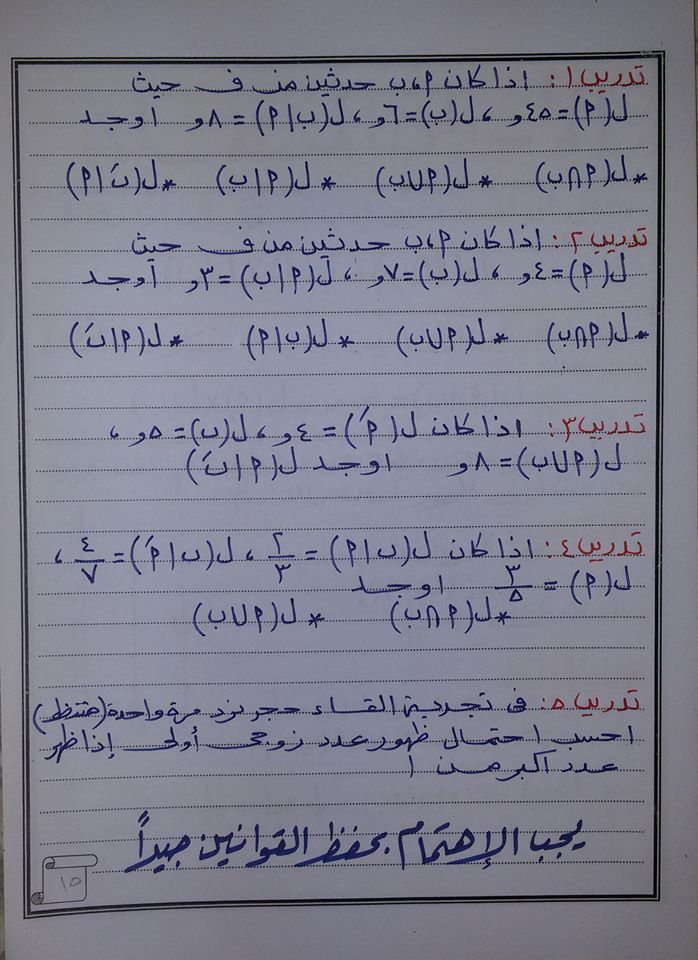 تدريب ١: اذا كان م،ب حدثين من ف حيث
ل(م)=٤٥و ، ل(ب)=٦و ، ل(ب|م)=٨و اوجد
*ل(م∩ب) *ل(م∪ب) *ل(م|ب) *ل(بَ|م)
تدريب ٢: اذا كان م،ب حدثين من ف حيث
ل(م)=٤و ، ل(ب)=٧و ، ل(م|ب)=٣و أوجد
*ل(م∩ب) *ل(م∪ب) *ل(ب|م) *ل(م|بَ)
تدريب ٣: اذا كان ل(مَ)=٤و ، ل(ب)=٥و ،
ل(م∪ب)=٨و اوجد ل(م|بَ)
تدريب ٤: اذا كان ل(ب|م)=٢/٣ ، ل(ب|مَ)=٤/٧ ،
ل(م)=٣/٥ اوجد
*ل(م∩ب) *ل(م∪ب)
تدريب ٥: فى تجربة القاء حجر نرد مرة واحدة (منتظم)
احسب احتمال ظهور عدد زوجى أولى إذا ظهر
عدد اكبر من ١
يجب الإهتمام بحفظ القوانين جيداً
١٥